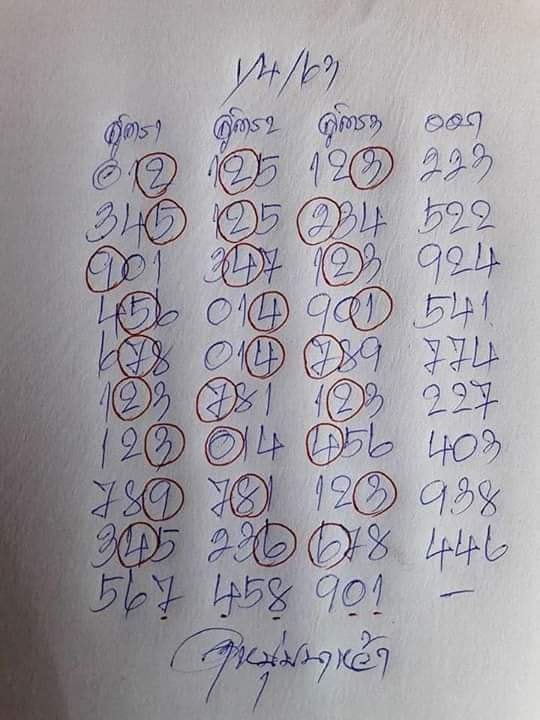 1/4/63
สูตร1 สูตร2 สูตร3 ออก
012 125 123 223
345 125 234 522
901 347 123 924
456 014 901 541
678 014 789 774
123 781 123 227
123 014 456 403
789 781 123 938
345 236 678 446
567 458 901 –